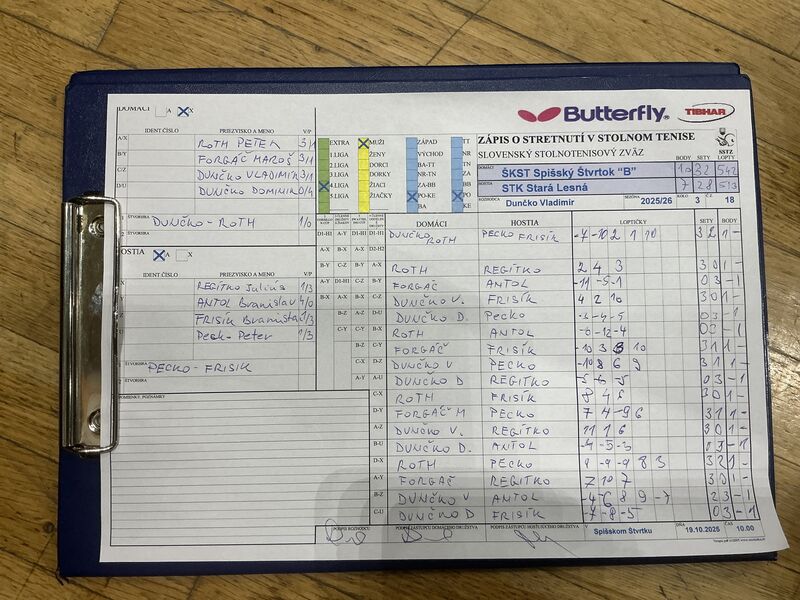 DOMÁCI A X
Butterfly TIBHAR
ZÁPIS O STRETNUTÍ V STOLNOM TENISE
SLOVENSKÝ STOLNOTENISOVÝ ZVÄZ
SSTZ
IDENT ČÍSLO PRIEZVISKO A MENO V/P
A/X ROTH PETER 3/1
B/Y FORGÁČ MAROŠ 3/1
DUNČKO VLADIMIR 3/1
D/U DUNČKO DOMINIK 0/4
ŠTVORHRA DUNČKO - ROTH 1/0
EXTRA MUŽI ZÁPAD TT
1.LIGA ŽENY VÝCHOD NR
2.LIGA DORCI BA-TT TN
3.LIGA DORKY NR-TN ZA
4.LIGA ŽIACI ZA-BB BB
5.LIGA ŽIAČKY PO-KE PO
BA KE
DOMÁCI BODY SETY LOPTY
ŠKST Spišský Štvrtok "B" 10 32 542
HOSTIA
STK Stará Lesná 7 28 513
ROZHODCA Dunčko Vladimír 2025/26 KOLO 3 Č. 18
HOSTIA A X
IDENT ČÍSLO PRIEZVISKO A MENO V/P
REGITKO Julius 1/3
ANTOL Branislav 4/0
FRISÍK Branislav 1/3
Pecko Peter 1/3
ŠTVORHRA PECKO - FRISIK
POMIENKY, POZNÁMKY
DOMÁCI HOSTIA LOPTIČKY SETY BODY
D1-H1 A-Y D1-H1 D1-H1 DUNČKO ROTH PECKO FRISÍK -7 -10 2 1 10 3 2 1 -
A-X B-X A-X D2-H2
B-Y C-Z B-Y A-X ROTH REGITKO 2 4 3 3 0 1 -
FORGÁČ ANTOL -11 -5 -1 0 3 - 1
DUNČKO V. FRISÍK 4 2 10 3 0 1 -
DUNČKO D. PECKO 0 3 - 1
ROTH ANTOL -6 -12 -4 0 3 - 1
FORGÁČ FRISÍK -10 3 8 10 3 1 1 -
DUNČKO V PECKO -10 8 6 9 3 1 1 -
A-U DUNČKO D REGITKO -5 -6 -5 0 3 - 1
C-X ROTH FRISÍK 8 4 6 3 0 1 -
D-Y FORGÁČ M PECKO 7 4 -9 6 3 1 1 -
A-Z DUNČKO V. REGITKO 11 1 6 3 0 1 -
B-U DUNČKO D. ANTOL -4 -5 -3 0 3 - 1
D-X ROTH PECKO 8 -9 -9 8 3 3 2 1 -
A-Y FORGÁČ REGITKO 7 10 7 3 0 1 -
B-Z DUNČKO V ANTOL -4 -6 8 9 -7 2 3 - 1
C-U DUNČKO D FRISÍK -7 -8 -5 0 3 - 1
PODPIS ROZHODCU PODPIS ZÁSTUPCU DOMÁCEHO DRUŽSTVA PODPIS ZÁSTUPCU HOSŤUJÚCEHO DRUŽSTVA V Spišskom Štvrtku DŇA 19.10.2025 ČAS 10.00